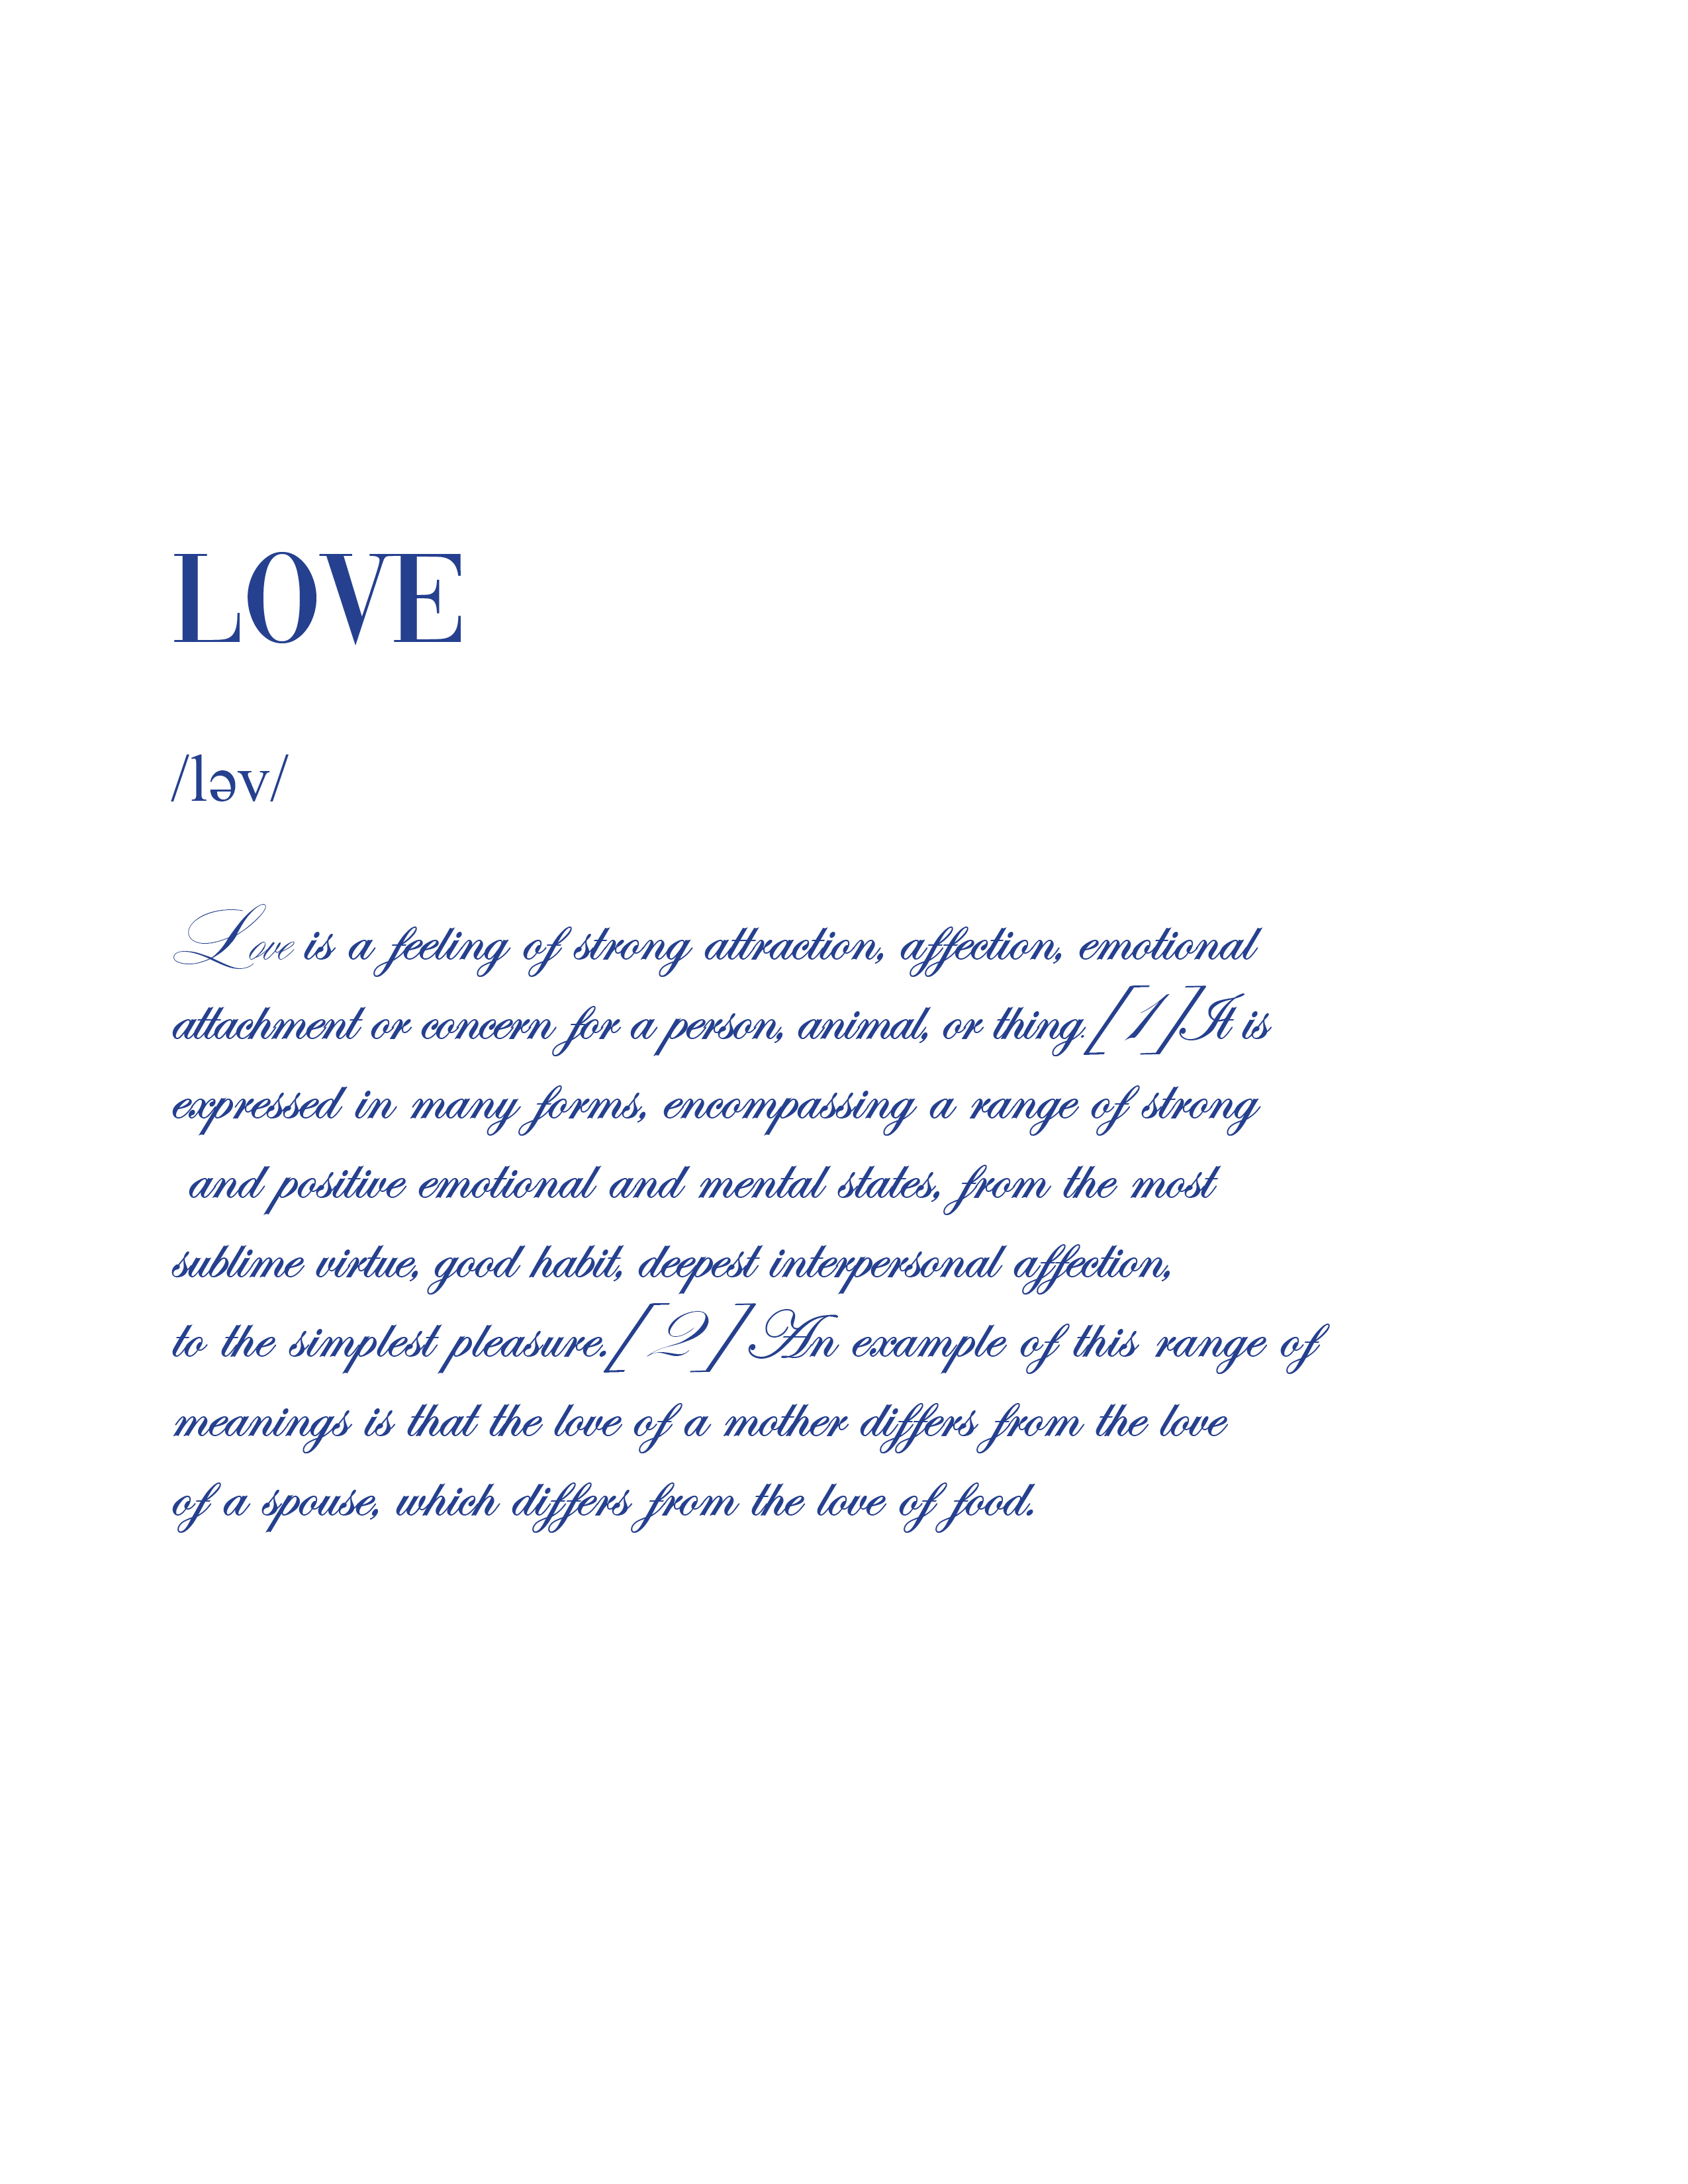 LOVE
/ləv/
Love is a feeling of strong attraction, affection, emotional
attachment or concern for a person, animal, or thing.[1]It is
expressed in many forms, encompassing a range of strong
and positive emotional and mental states, from the most
sublime virtue, good habit, deepest interpersonal affection,
to the simplest pleasure.[2] An example of this range of
meanings is that the love of a mother differs from the love
of a spouse, which differs from the love of food.